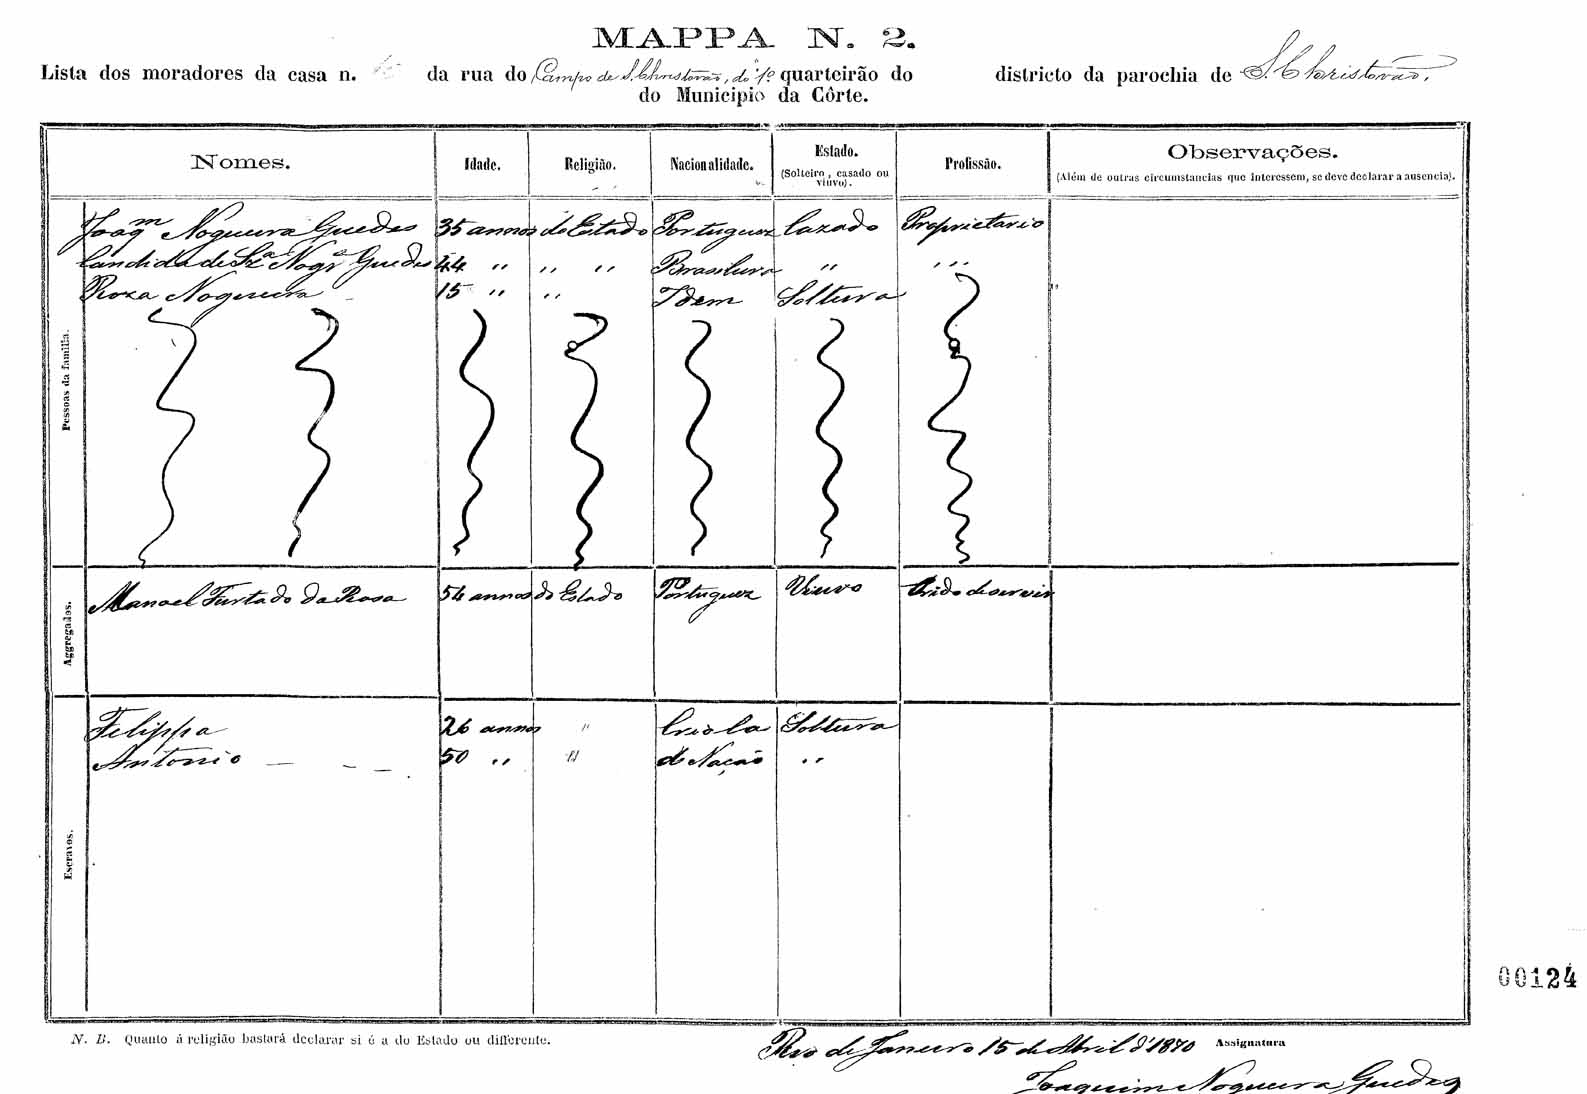 MAPPA N. 2.
Lista dos moradores da casa n. da rua do Campo de S. Christovão, do 1º quarteirão do districto da parochia de S. Christovão,
do Municipio da Côrte.
Nomes. Idade. Religião. Nacionalidade. Estado. (Solteiro, casado ou viuvo). Profissão. Observações. (Além de outras circumstancias que interessem, se deve declarar a ausencia).
Pessoas da familia.
Joaqm Nogueira Guedes 35 annos do Estado Portuguez Cazado Proprietario
Candida de Sza Nogra Guedes 44 " " " " Brasileira " " "
Roza Nogueira 15 " " Idem Solteira "
Aggregados.
Manoel Furtado da Rosa 54 annos do Estado Portuguez Viuvo Criado de servir
Escravos.
Felippa 26 annos " Criola Solteira
Antonio 50 " " de Nação "
00124
N. B. Quanto á religião bastará declarar si é a do Estado ou differente.
Rio de Janeiro 15 de Abril d' 1870 Assignatura
Joaquim Nogueira Guedes